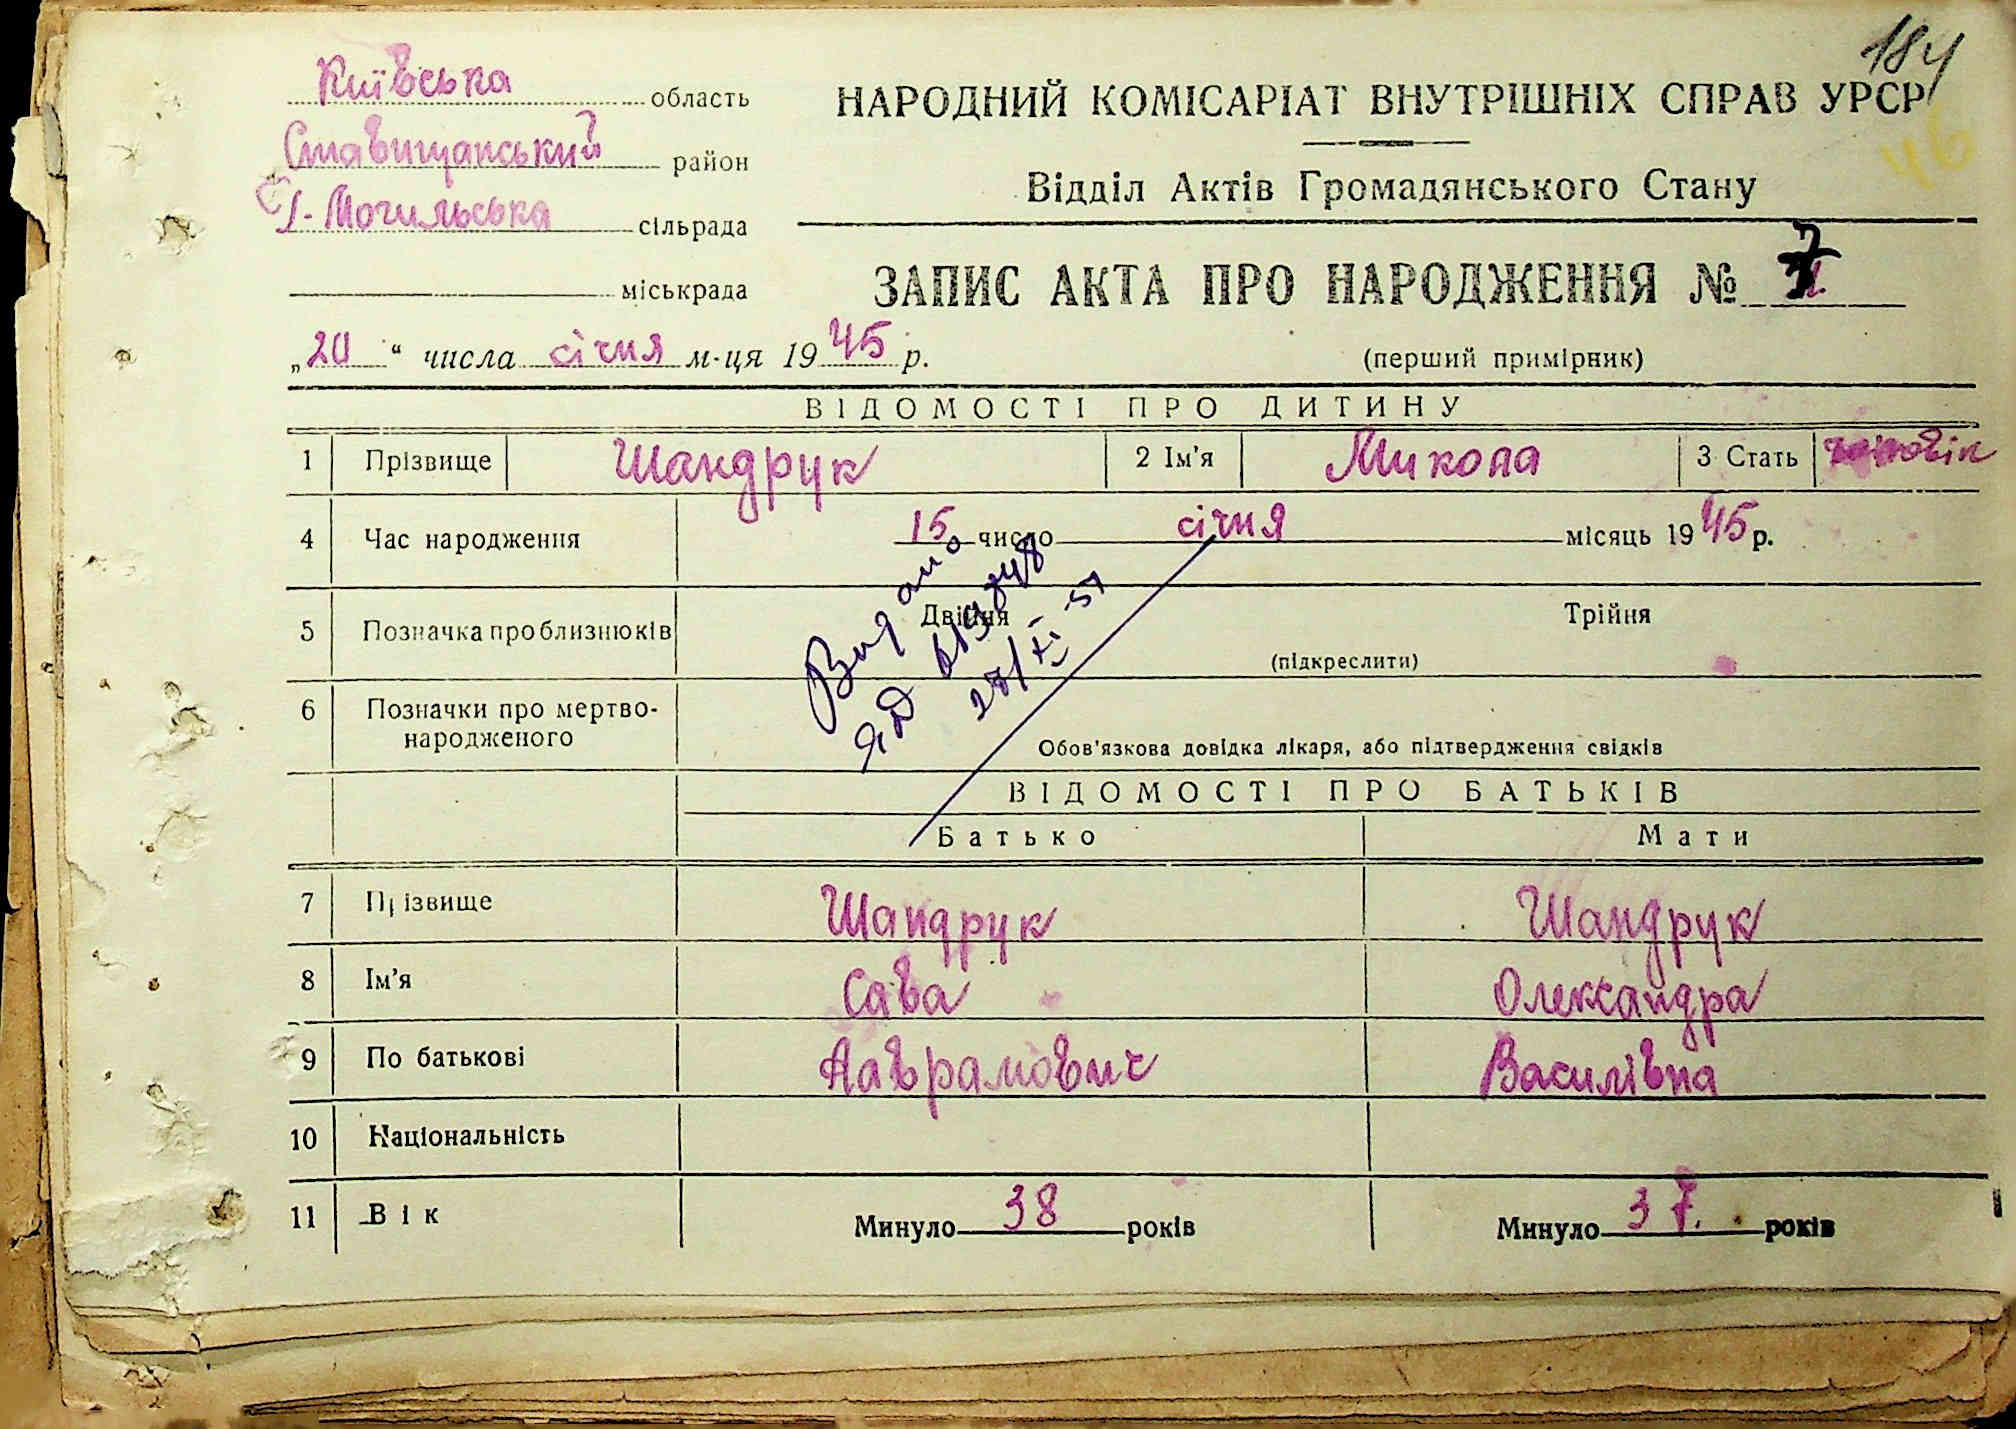 184
46
Київська область
Ставищанський район
Г-Могильська сільрада
міськрада
НАРОДНИЙ КОМІСАРІАТ ВНУТРІШНІХ СПРАВ УРСР
Відділ Актів Громадянського Стану
ЗАПИС АКТА ПРО НАРОДЖЕННЯ № 7
„20“ числа січня м-ця 1945 р.
(перший примірник)
ВІДОМОСТІ ПРО ДИТИНУ
1 Прізвище Шандрук 2 Ім'я Микола 3 Стать чоловік
4 Час народження 15 число січня місяць 1945 р.
5 Позначка про близнюків Двійня Трійня
(підкреслити)
6 Позначки про мертво-
народженого
Обов'язкова довідка лікаря, або підтвердження свідків
Видано
ЯД
27/XI-57
ВІДОМОСТІ ПРО БАТЬКІВ
Батько Мати
7 Прізвище Шандрук Шандрук
8 Ім'я Сава Олександра
9 По батькові Аврамович Василівна
10 Національність
11 Вік Минуло 38 років Минуло 37. років